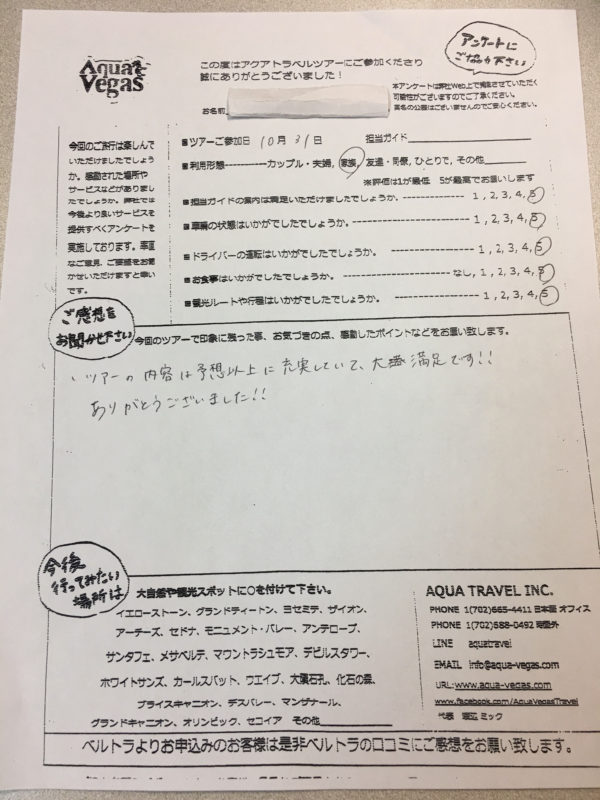 Aqua Vegas
この度はアクアトラベルツアーにご参加くださり
誠にありがとうございました！
アンケートに
ご協力下さい
本アンケートは弊社Web上で掲載させていただく
可能性がございますのでご了承ください。
実名の公表はございませんのでご安心ください。
お名前
今回のご旅行は楽しんで
いただけましたでしょう
か。感動された場所や
サービスなどがありまし
たでしょうか。弊社では
今後より良いサービスを
提供すべくアンケートを
実施しております。率直
なご意見、ご要望をお聞
かせいただけますと幸い
です。
■ツアーご参加日 10月31日 担当ガイド
■利用形態-----------カップル・夫婦, 家族, 友達・同僚, ひとりで, その他
※評価は1が最低 5が最高でお願いします
■担当ガイドの案内は満足いただけましたでしょうか。 -------------- 1, 2, 3, 4, 5
■車輌の状態はいかがでしたでしょうか。 -------------------- 1, 2, 3, 4, 5
■ドライバーの運転はいかがでしたでしょうか。 -------------------- 1, 2, 3, 4, 5
■お食事はいかがでしたでしょうか。 --------------------- なし, 1, 2, 3, 4, 5
■観光ルートや行程はいかがでしたでしょうか。 ----------------- 1, 2, 3, 4, 5
ご感想を
お聞かせ下さい
今回のツアーで印象に残った事、お気づきの点、感動したポイントなどをお願い致します。
ツアーの内容は予想以上に充実していて、大満足です!!
ありがとうございました!!
今後
行ってみたい
場所は
大自然や観光スポットに○を付けて下さい。
イエローストーン、グランドティートン、ヨセミテ、ザイオン、
アーチーズ、セドナ、モニュメント・バレー、アンテロープ、
サンタフェ、メサベルデ、マウントラシュモア、デビルスタワー、
ホワイトサンズ、カールスバット、ウエイブ、大隕石孔、化石の森、
ブライスキャニオン、デスバレー、マンザナール、
グランドキャニオン、オリンピック、セコイア その他
AQUA TRAVEL INC.
PHONE 1(702)665-4411 日本語 オフィス
PHONE 1(702)588-0492 時間外
LINE aquatravel
EMAIL info@aqua-vegas.com
URL:www.aqua-vegas.com
www.facebook.com/AquaVegasTravel
代表 ミック
ベルトラよりお申込みのお客様は是非ベルトラの口コミにご感想をお願い致します。